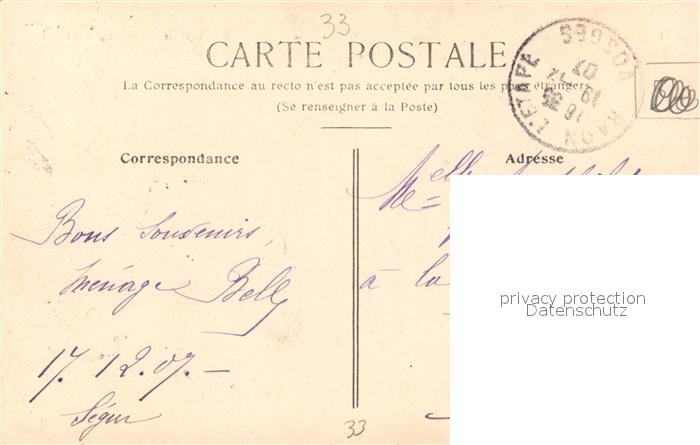 33
CARTE POSTALE
La Correspondance au recto n'est pas acceptée par tous les pays étrangers
(Se renseigner à la Poste)
RAON L'ETAPE VOSGES
18
19 12
07
Correspondance
Adresse
Melle
Bons Souvenirs,
ménage Belly
à la
17. 12. 07. —
Ségur
33
privacy protection
Datenschutz